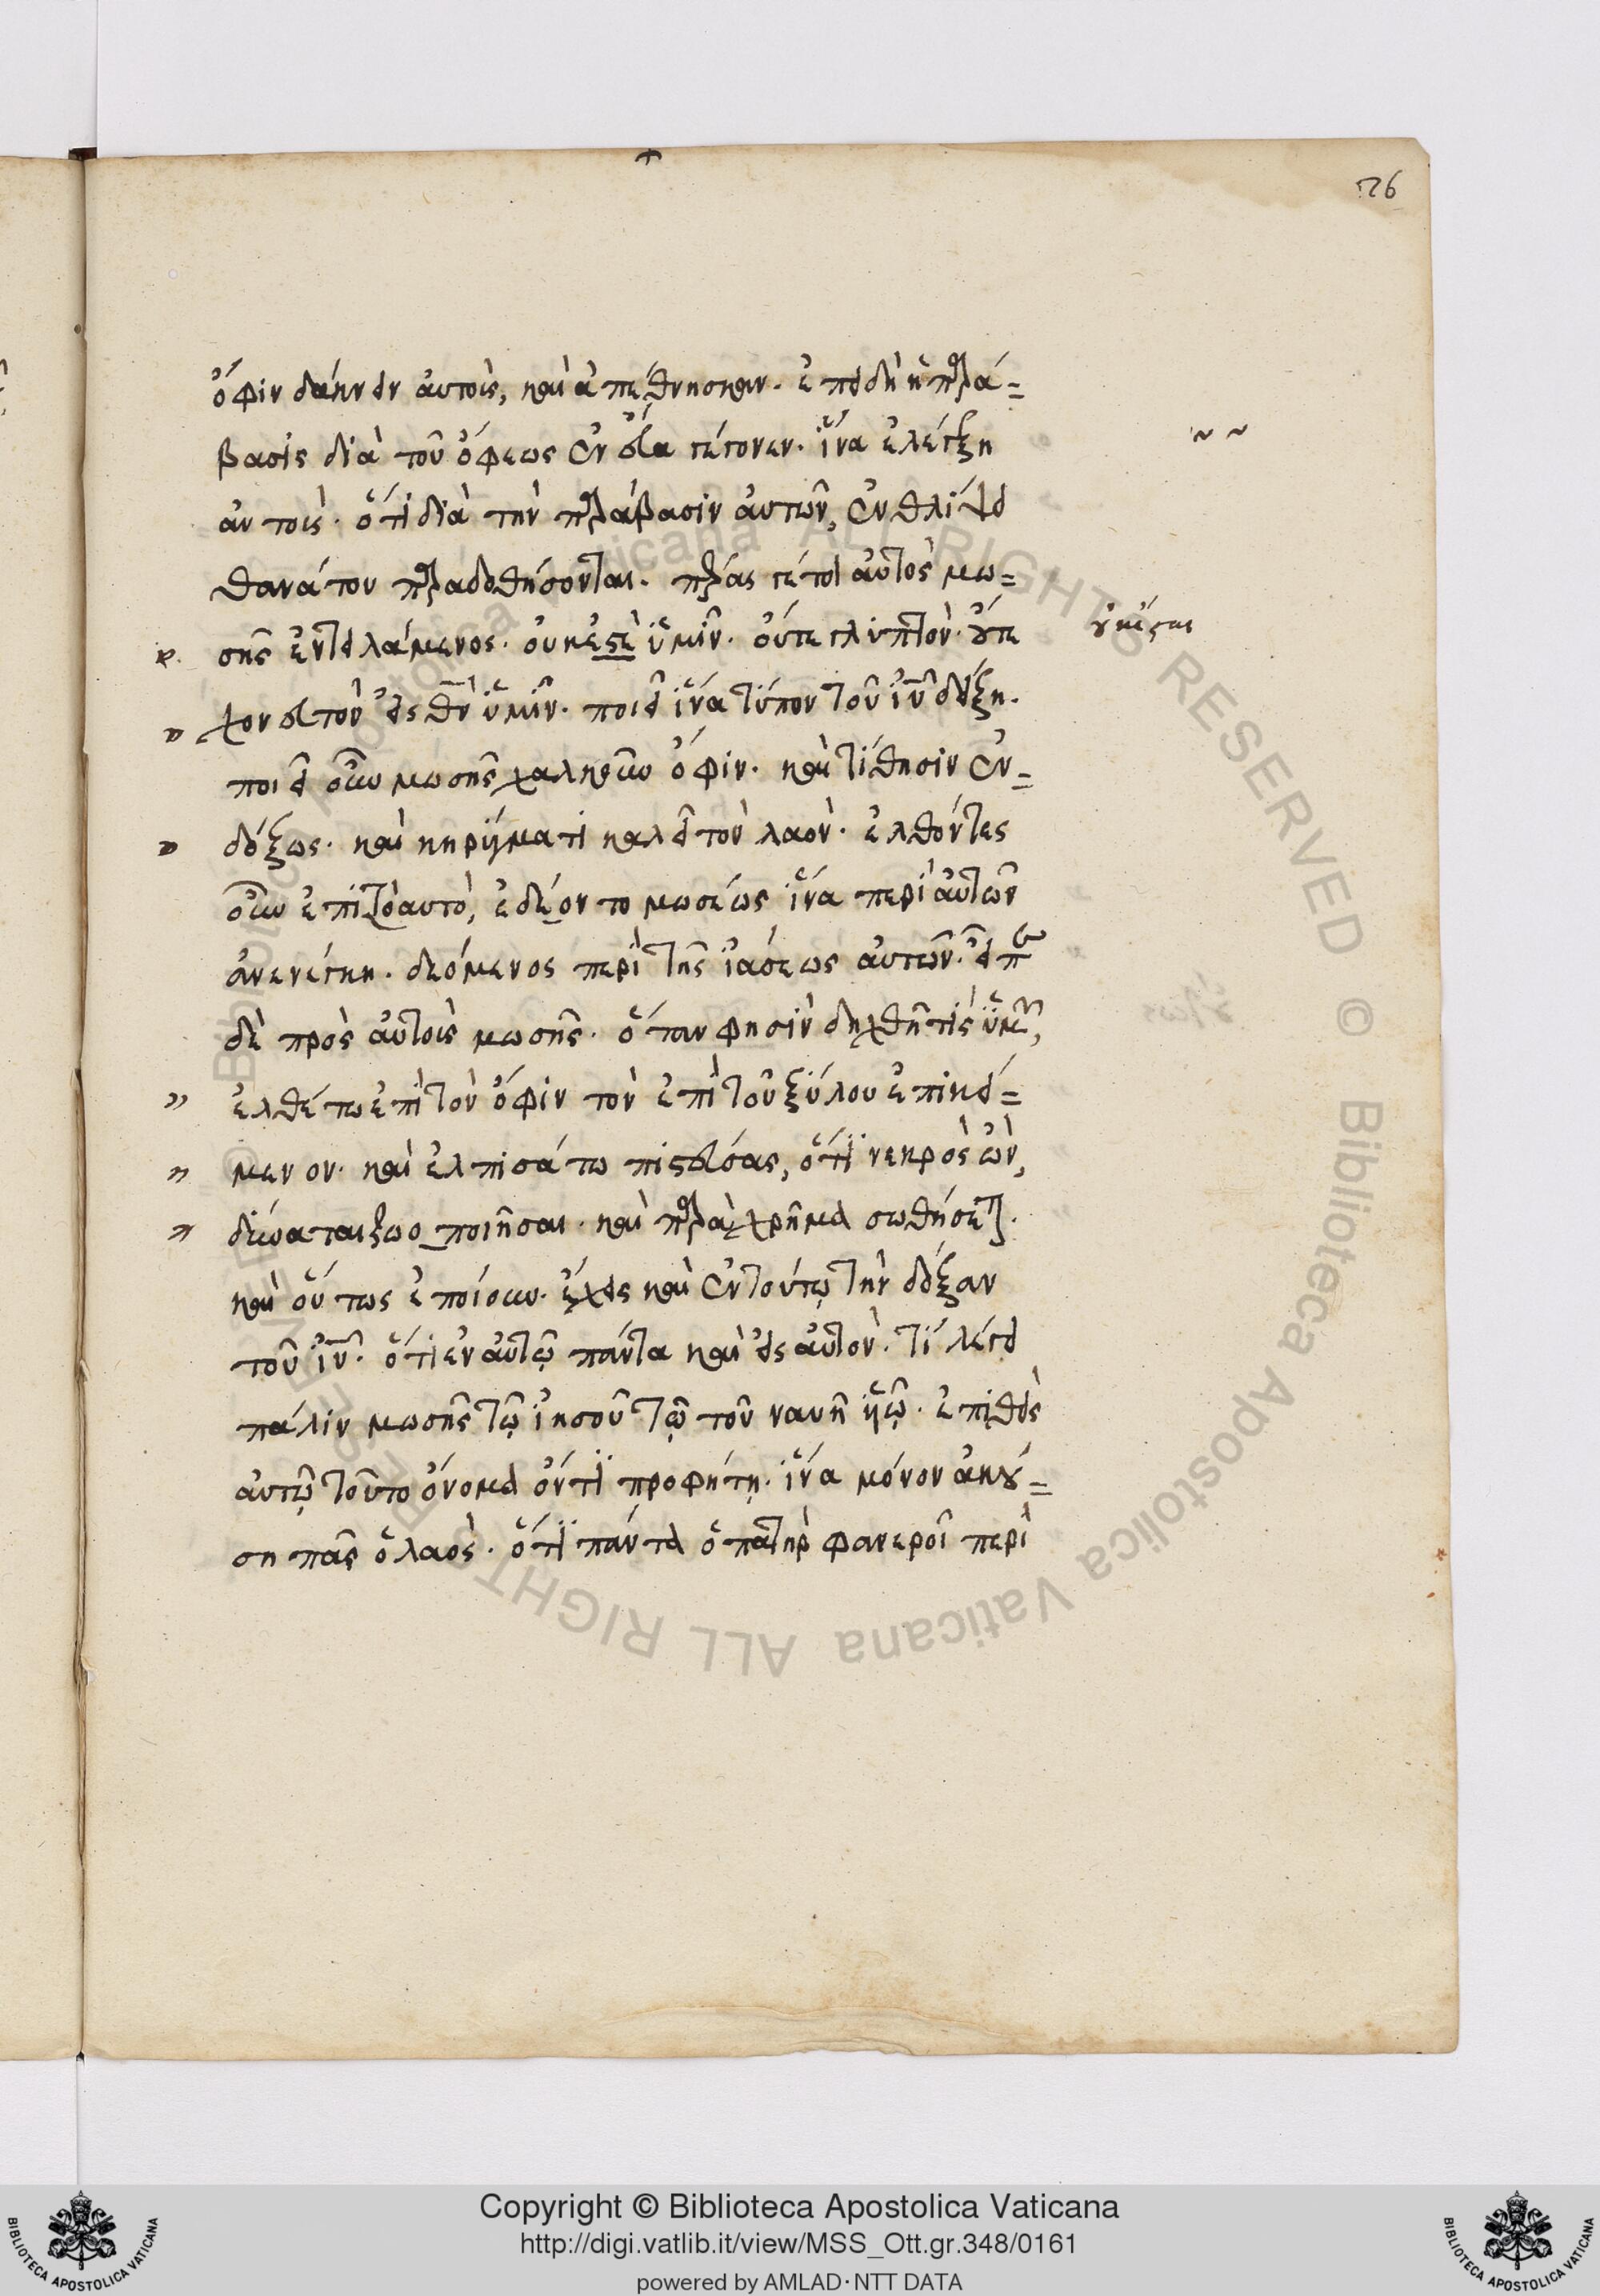 76
ὄφιν δάκνειν αὐτοῖς, καὶ ἀπέθνησκον. ἐπειδὴ ἡ παρά=
βασις διὰ τοῦ ὄφεως ἐν εὔα γέγονεν. ἵνα ἐλέγξη
αὐτοῖς. ὅτι διὰ τὴν παράβασιν αὐτῶν, ἐν θλίψει
θανάτου παραδοθήσονται. πέρας γέ τοι αὐτὸς μω=
σῆς ἐντειλάμενος. οὐκ ἔσται ὑμῖν. οὔτε γλυπτὸν. οὔτε
οὐκ ἔσται
χονευτὸν εἰς θ̅ν̅ ὑμῖν. ποιεῖ ἵνα τύπον τοῦ ἰ̅υ̅ δείξη.
ποιεῖ οὖν μωσῆς χαλκοῦν ὄφιν. καὶ τίθησιν ἐν=
δόξως. καὶ κηρύγματι καλεῖ τὸν λαόν. ἐλθόντες
οὖν ἐπιτὸαυτὸ, ἐδέοντο μωσέως ἵνα περὶ αὐτῶν
ἀνενέγκη. δεόμενος περὶ τῆς ἰάσεως αὐτῶν. εἶπεν
δὲ πρὸς αὐτοῖς μωσῆς. ὅταν φησὶν δηχθῆ τὶς ὑμῶν,
ἐλθέτω ἐπὶ τὸν ὄφιν τὸν ἐπὶ τοῦ ξύλου ἐπικεί=
μενον. καὶ ἐλπισάτω πιστεύσας, ὅτι νεκρὸς ὢν,
δύναται ζωοποιῆσαι. καὶ παραχρῆμα σωθήσεται.
καὶ οὕτως ἐποίουν. ἔχεις καὶ ἐν τούτω τὴν δόξαν
τοῦ ἰ̅υ̅. ὅτι ἐν αὐτῶ πάντα καὶ εἰς αὐτόν. τί λέγει
πάλιν μωσῆς τῶ ἰησοῦ τῶ τοῦ ναυῆ ὑῶ. ἐπιθεὶς
αὐτῶ τοῦτο ὄνομα ὄντι προφήτη. ἵνα μόνον ἀκού=
ση πᾶς ὁ λαὸς. ὅτι πάντα ὁ πατὴρ φανεροῖ περὶ
© Biblioteca Apostolica Vaticana ALL RIGHTS RESERVED
Copyright © Biblioteca Apostolica Vaticana
http://digi.vatlib.it/view/MSS_Ott.gr.348/0161
powered by AMLAD·NTT DATA
BIBLIOTECA APOSTOLICA VATICANA
BIBLIOTECA APOSTOLICA VATICANA